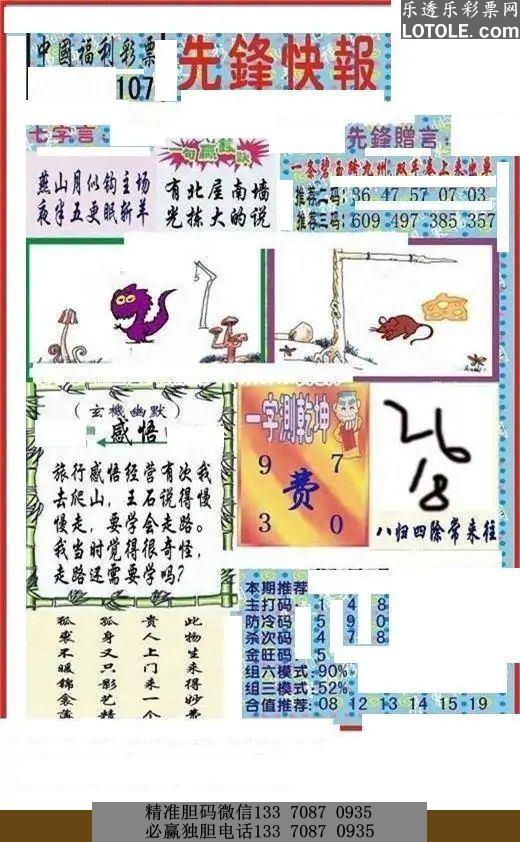 乐透乐彩票网
LOTOLE.com
中國福利彩票
107
先鋒快報
七字言:
燕山月似钩主场
夜半五更眠新羊
一句赢钱訣
有北屋南墙
光拣大的说
先鋒贈言:
推荐二码: 36 47 57 07 03
推荐三码: 609 497 385 357
(玄機幽默)
感悟
旅行感悟经营有次我
去爬山，王石说得慢
慢走，要学会走路。
我当时觉得很奇怪，
走路还需要学吗?
一字測乾坤
9 7
费
3 0
26
18
八归四除常来往
本期推荐
主打码: 1 4 8
防冷码: 5 9 0
杀次码: 4 7 8
金旺码: 5
组六模式: 90%
组三模式: 52%
合值推荐: 08 12 13 14 15 19
此物生来得妙
贵人上门来一个
孤身又只影
狐裘不暖锦衾薄
精准胆码微信133 7087 0935
必赢独胆电话133 7087 0935